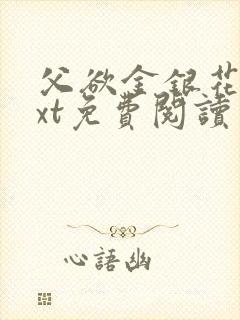 父欲金銀花
xt免費閱讀
心語幽